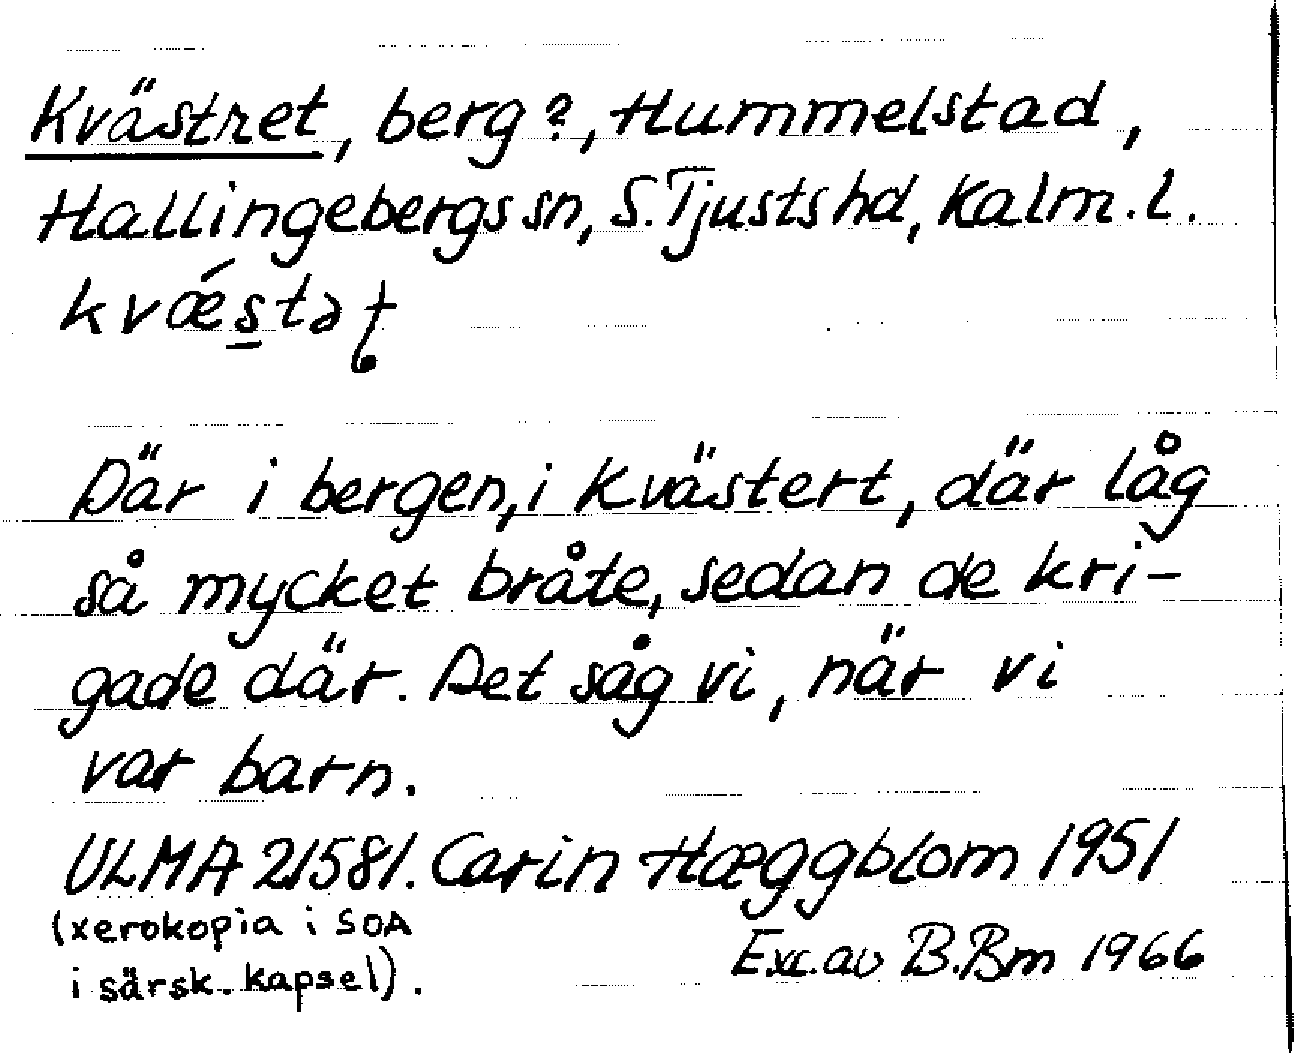 Kvästret, berg?, Hummelstad,
Hallingebergs sn, S. Tjusts hd, Kalm. l.
kvǽs̲tət̢
Där i bergen, i Kvästert, där låg
så mycket bråte, sedan de kri-
gade där. Det såg vi, när vi
var barn.
ULMA 21581. Carin Hæggblom 1951
(xerokopia i SOA
i särsk. kapsel).
Exc. av B. Bm 1966